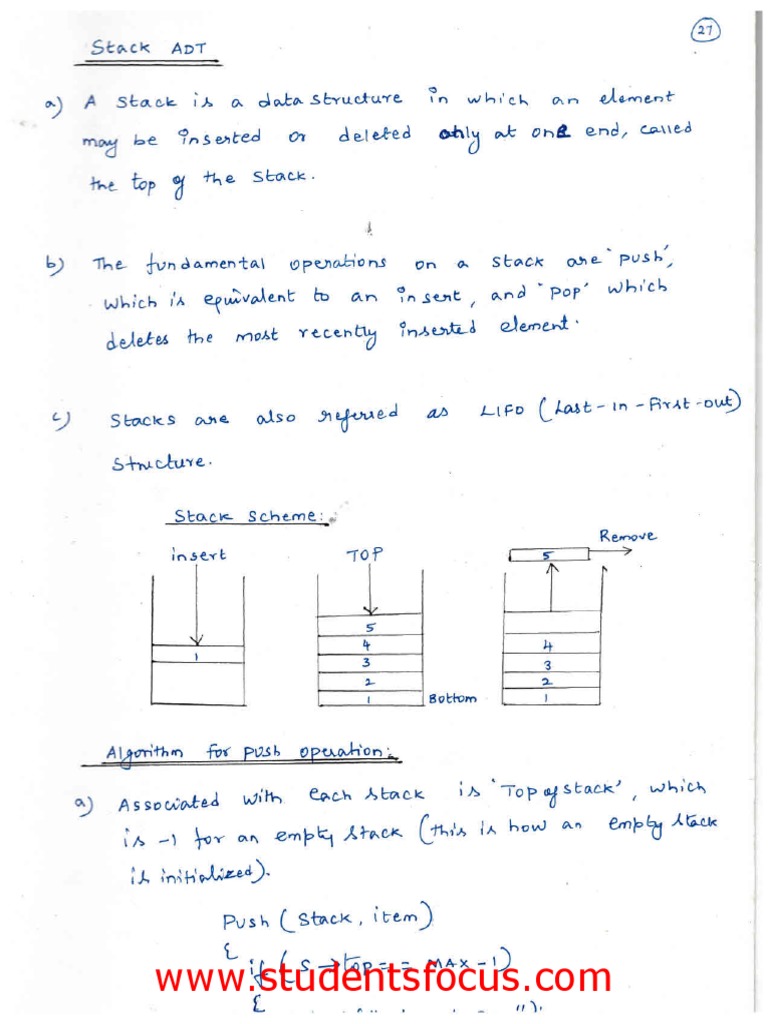 27
Stack ADT
a) A stack is a data structure in which an element
may be inserted or deleted only at one end, called
the top of the stack.
b) The fundamental operations on a stack are 'push',
which is equivalent to an insert, and 'pop' which
deletes the most recently inserted element.
c) Stacks are also referred as LIFO (Last-in-First-out)
structure.
Stack Scheme:
insert
1
TOP
5
4
3
2
1
Bottom
Remove
5
4
3
2
1
Algorithm for push operation:
a) Associated with each stack is 'Top of stack', which
is -1 for an empty stack (this is how an empty stack
is initialized).
Push (Stack, item)
{
if (S→top== MAX-1)
www.studentsfocus.com
{
");